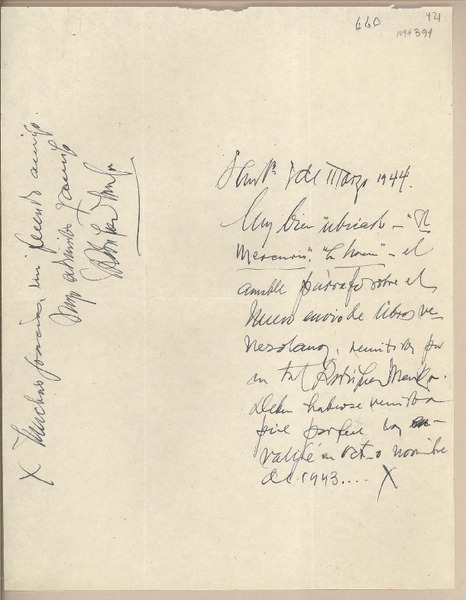 660
421
1044391
3 de Marzo 1944.
Muy bien ubicado - "El
Mercurio". "La Hora" - el
amable párrafo sobre el
nuevo envio de libros ve-
nezolanos, remitidos por
un tal
Deben haberse
pues los en-
valijé en oct. o noviembre
de 1943.... X
X Muchas gracias, mi fecundo amigo.
Suyo admirador y amigo